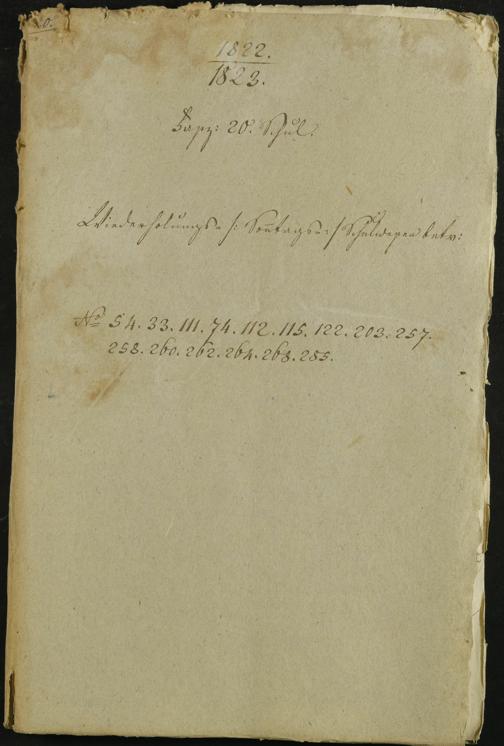 0.
1822.
1823.
Fasz: 20. Schul.
Wiederholungs- /: Sontags- :/ Schulwesen betr:
No 54. 33. 111. 74. 112. 115. 122. 203. 257.
258. 260. 262. 264. 268. 285.